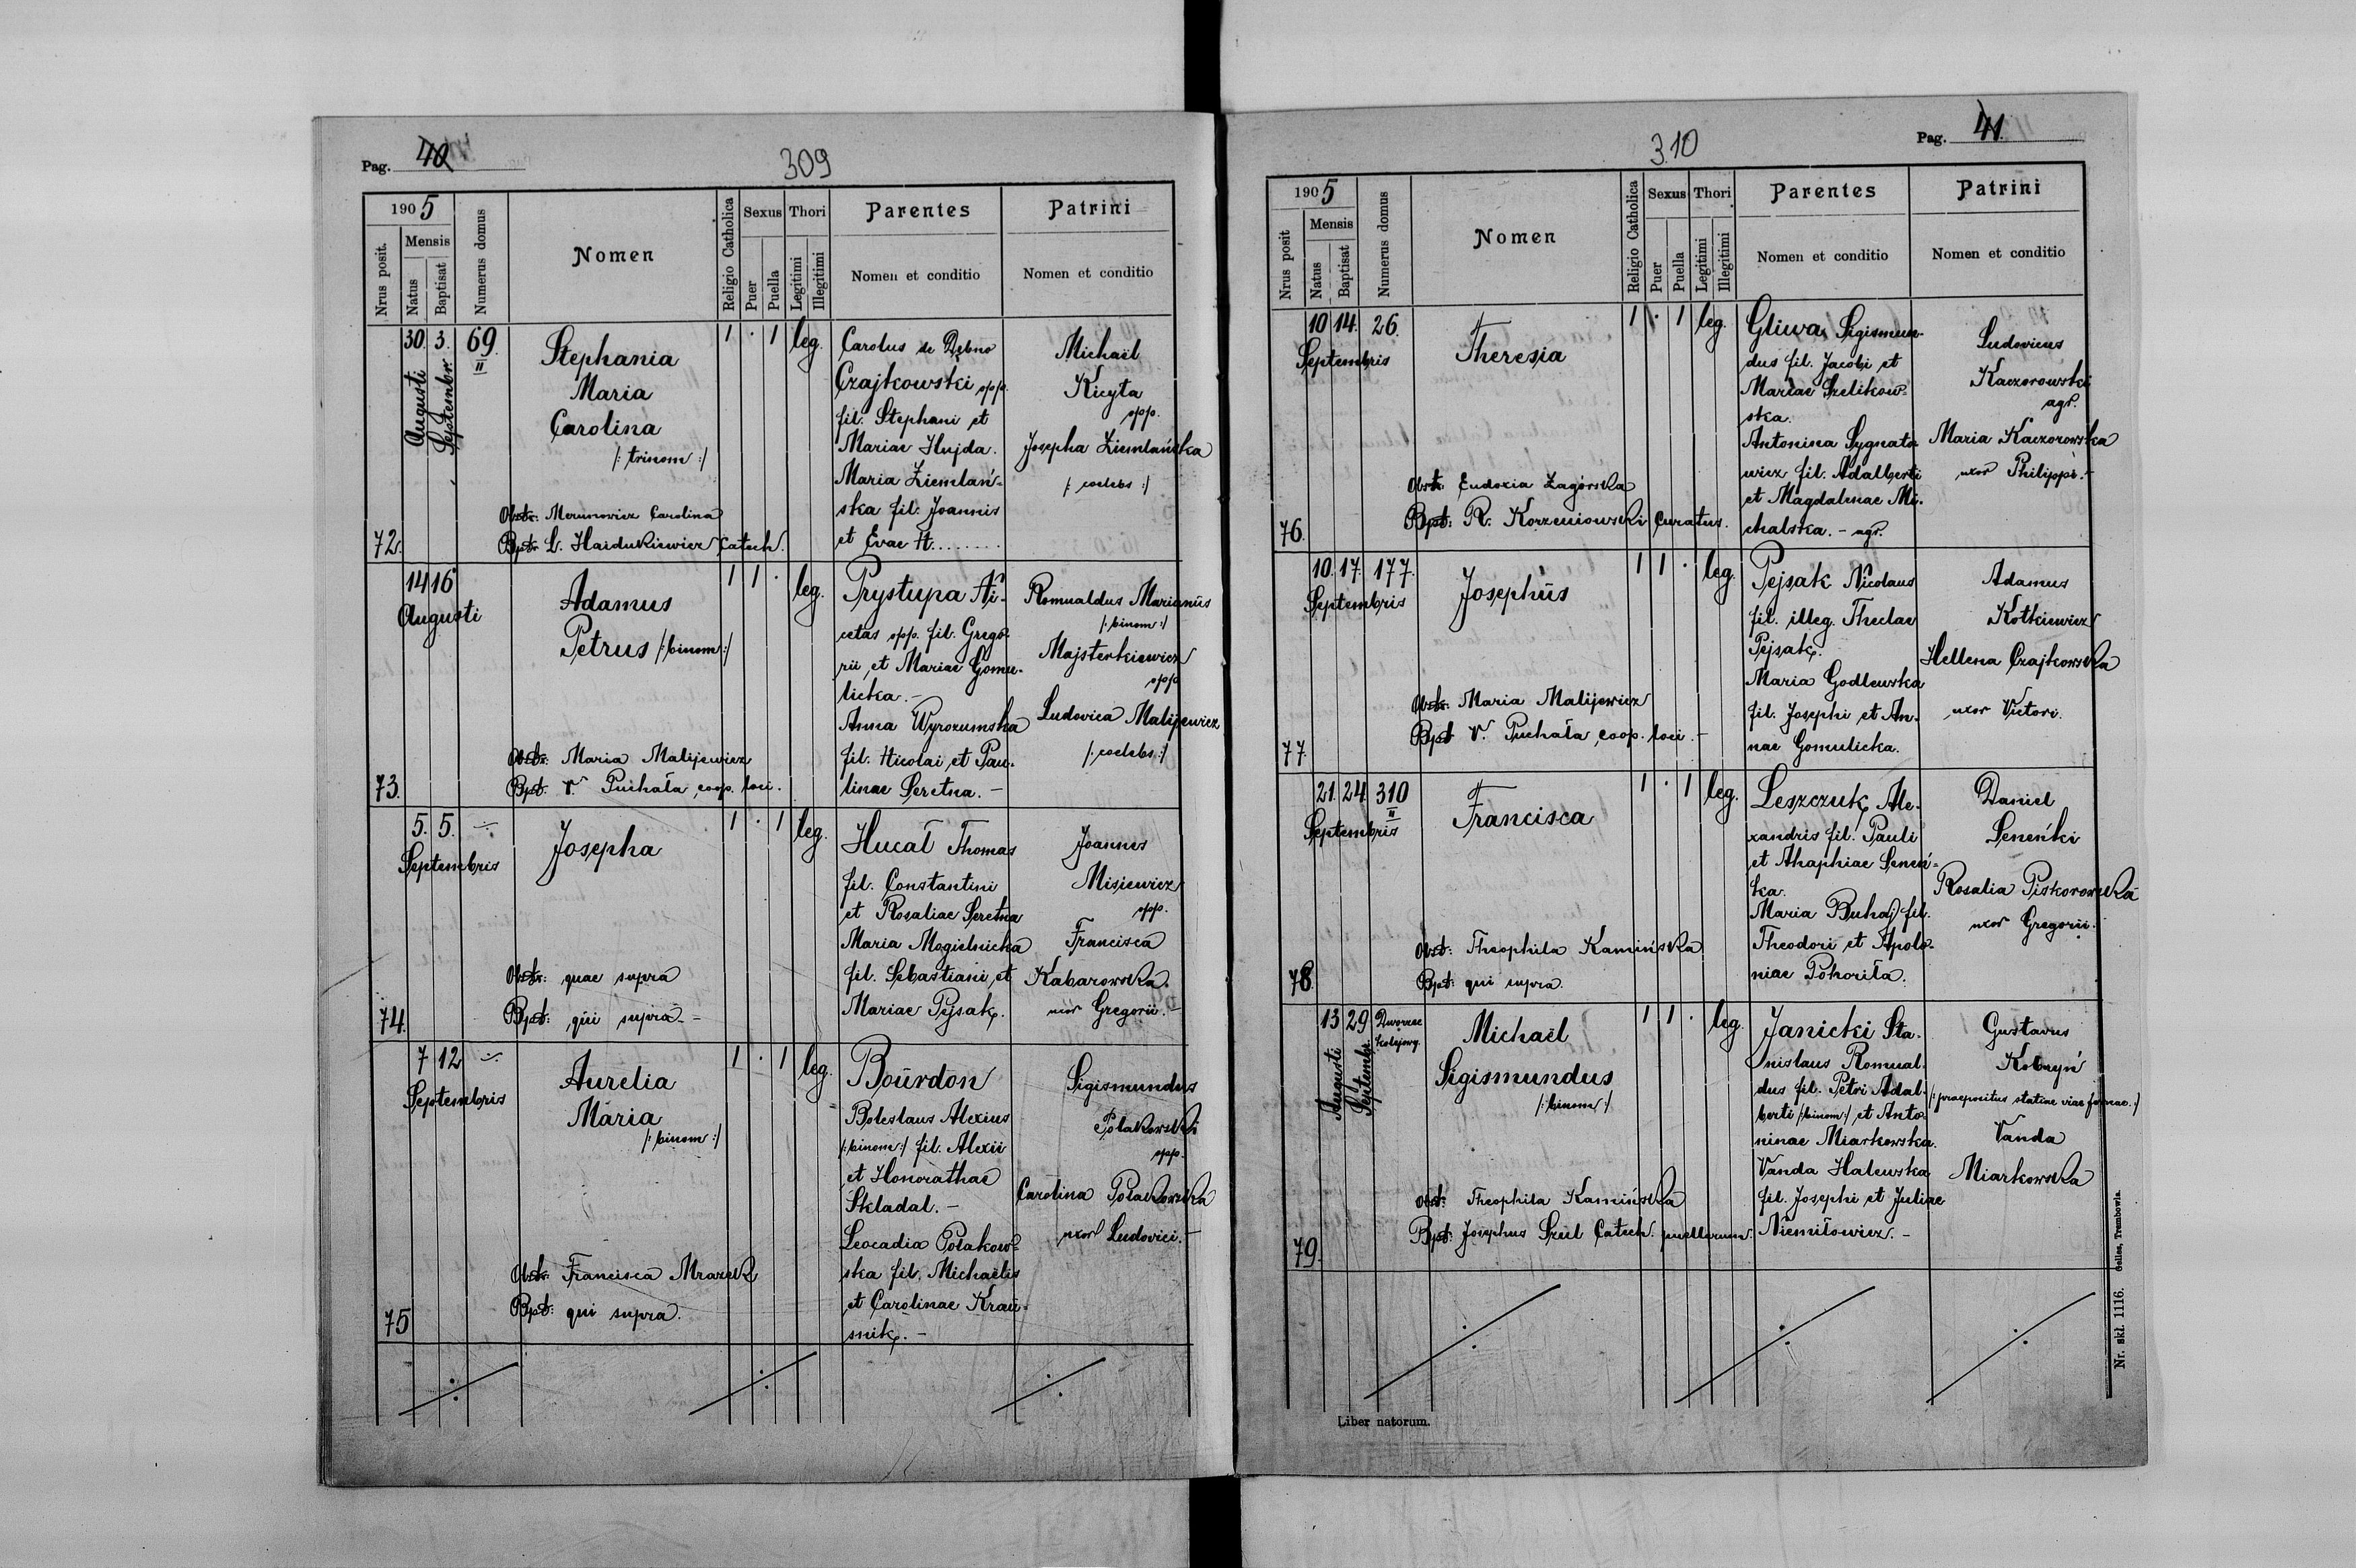 Pag. 40
309
1905
Nrus posit.
Mensis
Natus
Baptisat
Numerus domus
Nomen
Religio Catholica
Sexus
Puer
Puella
Thori
Legitimi
Illegitimi
Parentes
Nomen et conditio
Patrini
Nomen et conditio
72.
30. 3. 69.
II
Augusti
Septembr.
Stephania
Maria
Carolina
/: trinom :/
Obstr: Merunowicz Carolina
Bapt: L. Haidukiewicz Catech.
1 · 1 leg.
Carolus de Dębno
Czajkowski opp.
fil. Stephani et
Mariae Hujda.
Maria Ziemlań-
ska fil. Joannis
et Evae H........
Michaël
Kicyta
opp.
Josepha Ziemlańska
/: coelebs :/
73.
14 16
Augusti
Adamus
Petrus /: binom :/
Obstr: Maria Malijewicz
Bapt. V. Puchała, coop. loci.
1 1 · leg.
Prystupa Ni-
cetas opp. fil. Grego-
rii et Mariae Gomu-
licka. -
Anna Wyrozumska
fil. Nicolai et Pau-
linae Seretna. -
Romualdus Marianus
/: binom :/
Majsterkiewicz
opp.
Ludovica Malijewicz
/: coelebs :/
74.
5. 5. ·/.
Septembris
Josepha
Obstr: quae supra
Bapt: qui supra -
1 · 1 leg.
Hucał Thomas
fil. Constantini
et Rosaliae Seretna
Maria Mogielnicka
fil. Sebastiani et
Mariae Pejsak.
Joannes
Misiewicz
opp.
Francisca
Kabarowska.
uxor Gregorii. -
75
7 12 ·/.
Septembris
Aurelia
Maria
/: binom :/
Obstr: Francisca Mrazek
Bapt: qui supra.
1 · 1 leg.
Bourdon
Boleslaus Alexius
/: binom :/ fil. Alexii
et Honorathae
Skladal. -
Leocadia Polakow-
ska fil. Michaëlis
et Carolinae Krau-
snik. -
Sigismundus
Polakowski
opp.
Carolina Polakowska
uxor Ludovici. -
310
Pag. 41.
1905
Nrus posit
Mensis
Natus
Baptisat
Numerus domus
Nomen
Religio Catholica
Sexus
Puer
Puella
Thori
Legitimi
Illegitimi
Parentes
Nomen et conditio
Patrini
Nomen et conditio
76.
10 14. 26.
Septembris
Theresia
Obstr: Eudoxia Zagórska
Bapt: R. Korzeniowski Curatus.
1 · 1 leg.
Gliwa Sigismun-
dus fil. Jacobi et
Mariae Szelikow-
ska.
Antonina Sygnato-
wicz fil. Adalberti
et Magdalenae Mi-
chalska. - agr.
Ludovicus
Kaczorowski
agr.
Maria Kaczorowska
uxor Philippi. -
77.
10. 17. 177.
Septembris
Josephus
Obstr: Maria Malijewicz
Bapt V. Puchała coop. loci. -
1 1 · leg.
Pejsak Nicolaus
fil. illeg. Theclae
Pejsak.
Maria Godlewska
fil. Josephi et An-
nae Gomulicka.
Adamus
Kotkiewicz
Hellena Czajkowska
uxor Victori.
78.
21. 24. 310
II
Septembris
Francisca
Obst: Theophila Kamińska
Bapt: qui supra.
1 · 1 leg.
Leszczuk Ale-
xandris fil. Pauli
et Ahaphiae Seneń-
ka.
Maria Buhaj fil.
Theodori et Apolo-
niae Pohoriła.
Daniel
Seneńki
Rosalia Piskorowska
uxor Gregorii.
79.
13 29 Dworzec
kolejowy.
Augusti
Septembr.
Michaël
Sigismundus
/: binom :/
Obst: Theophila Kamińska
Bapt: Josephus Szul Catech. puellarum.
1 1 · leg.
Janicki Sta-
nislaus Romual-
dus fil. Petri Adal-
berti /: binom :/ et Anto-
ninae Miarkowska.
Vanda Halewska
fil. Josephi et Juliae
Niemiłowicz. -
Gustavus
Kobuyń
/: praepositus statiae viae ferreae. :/
Vanda
Miarkowska
Liber natorum.
Nr. skł. 1116. Gelles, Trembowla.